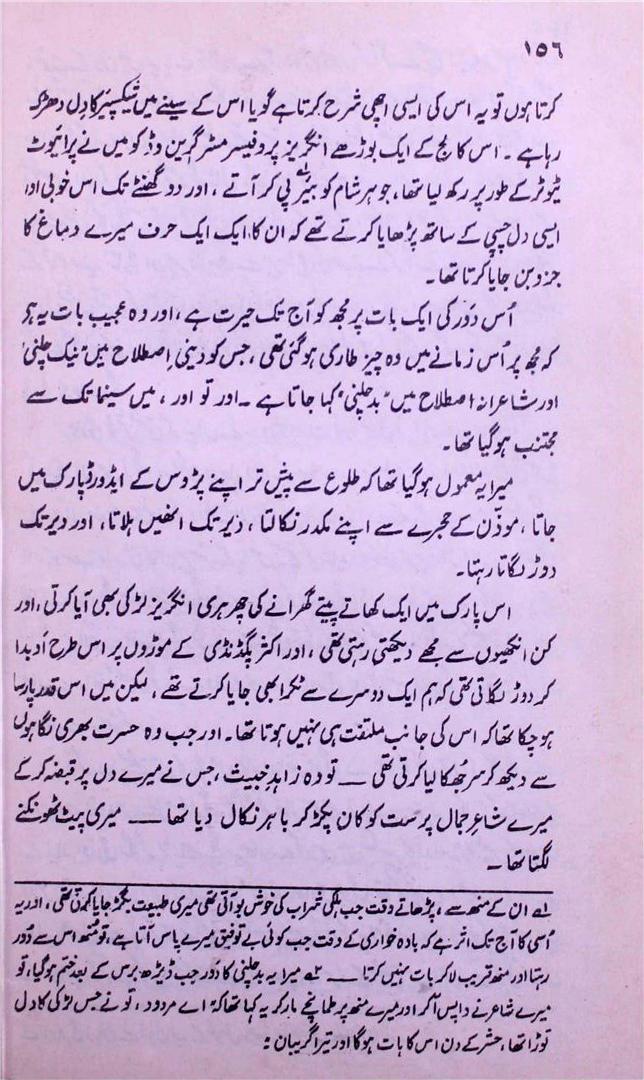 ۱۵۶
کرتا ہوں تو یہ اس کی ایسی اچھی شرح کرتا ہے گویا اس کے سینے میں شیکسپیئر کا دل دھڑک
رہا ہے۔ اس کالج کے ایک بوڑھے انگریز پروفیسر مسٹر گرین وڈ کو میں نے پرائیوٹ
ٹیوٹر کے طور پر رکھ لیا تھا، جو ہر شام کو بیئر پی کر آتے، اور دو گھنٹے تک اس خوبی اور
ایسی دل چسپی کے ساتھ پڑھایا کرتے تھے کہ ان کا ایک ایک حرف میرے دماغ کا
جزو بن جایا کرتا تھا۔
اُس دَور کی ایک بات پر مجھ کو آج تک حیرت ہے، اور وہ عجیب بات یہ ہے
کہ مجھ پر اُس زمانے میں وہ چیز طاری ہو گئی تھی، جس کو دینی اصطلاح میں "نیک چلنی"
اور شاعرانہ اصطلاح میں "بد چلنی" کہا جاتا ہے۔ اور تو اور، میں سینما تک سے
مجتنب ہو گیا تھا۔
میرا یہ معمول ہو گیا تھا کہ طلوع سے پیش تر اپنے پڑوس کے ایڈورڈ پارک میں
جاتا، موذّن کے حجرے سے اپنے مگدر نکالتا، دیر تک انھیں ہلاتا، اور دیر تک
دوڑ لگاتا رہتا۔
اس پارک میں ایک کھاتے پیتے گھرانے کی چھرہری انگریز لڑکی بھی آیا کرتی، اور
کن انکھیوں سے مجھے دیکھتی رہتی تھی، اور اکثر پگڈنڈی کے موڑوں پر اس طرح اَدبدا
کر دوڑ لگاتی تھی کہ ہم ایک دوسرے سے ٹکرا بھی جایا کرتے تھے، لیکن میں اس قدر پارسا
ہو چکا تھا کہ اس کی جانب ملتفت ہی نہیں ہوتا تھا۔ اور جب وہ حسرت بھری نگاہوں
سے دیکھ کر سر جھکا لیا کرتی تھی — تو وہ زاہدِ خبیث، جس نے میرے دل پر قبضہ کر کے
میرے شاعرِ جمال پرست کو کان پکڑ کر باہر نکال دیا تھا — میری پیٹ ٹھونکنے
لگتا تھا۔
؎۱ ان کے منھ سے، پڑھاتے وقت جب ہلکی شراب کی خوش بو آتی تھی میری طبیعت بگڑ جایا کرتی تھی، اور یہ
اُسی کا آج تک اثر ہے کہ بادہ خواری کے وقت جب کوئی بے توفیق میرے پاس آتا ہے، تو منھ اس سے دور
رہتا اور منھ قریب لا کر بات نہیں کرتا — ؎۲ میرا یہ بد چلنی کا دَور جب ڈیڑھ برس کے بعد ختم ہو گیا، تو
میرے شاعر نے واپس آ کر اور میرے منھ پر طمانچے مار کر یہ کہا تھا کہ اے مردود، تو نے جس لڑکی کا دل
توڑا تھا، حشر کے دن اس کا ہات ہوگا اور تیرا گریبان